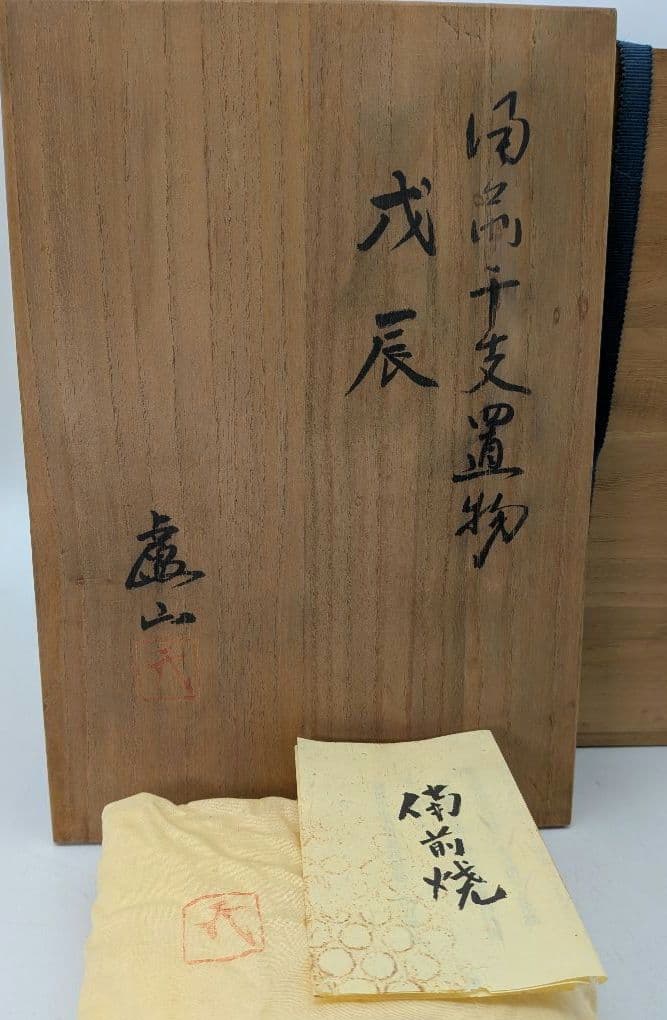 備前干支置物
戊辰
備前焼